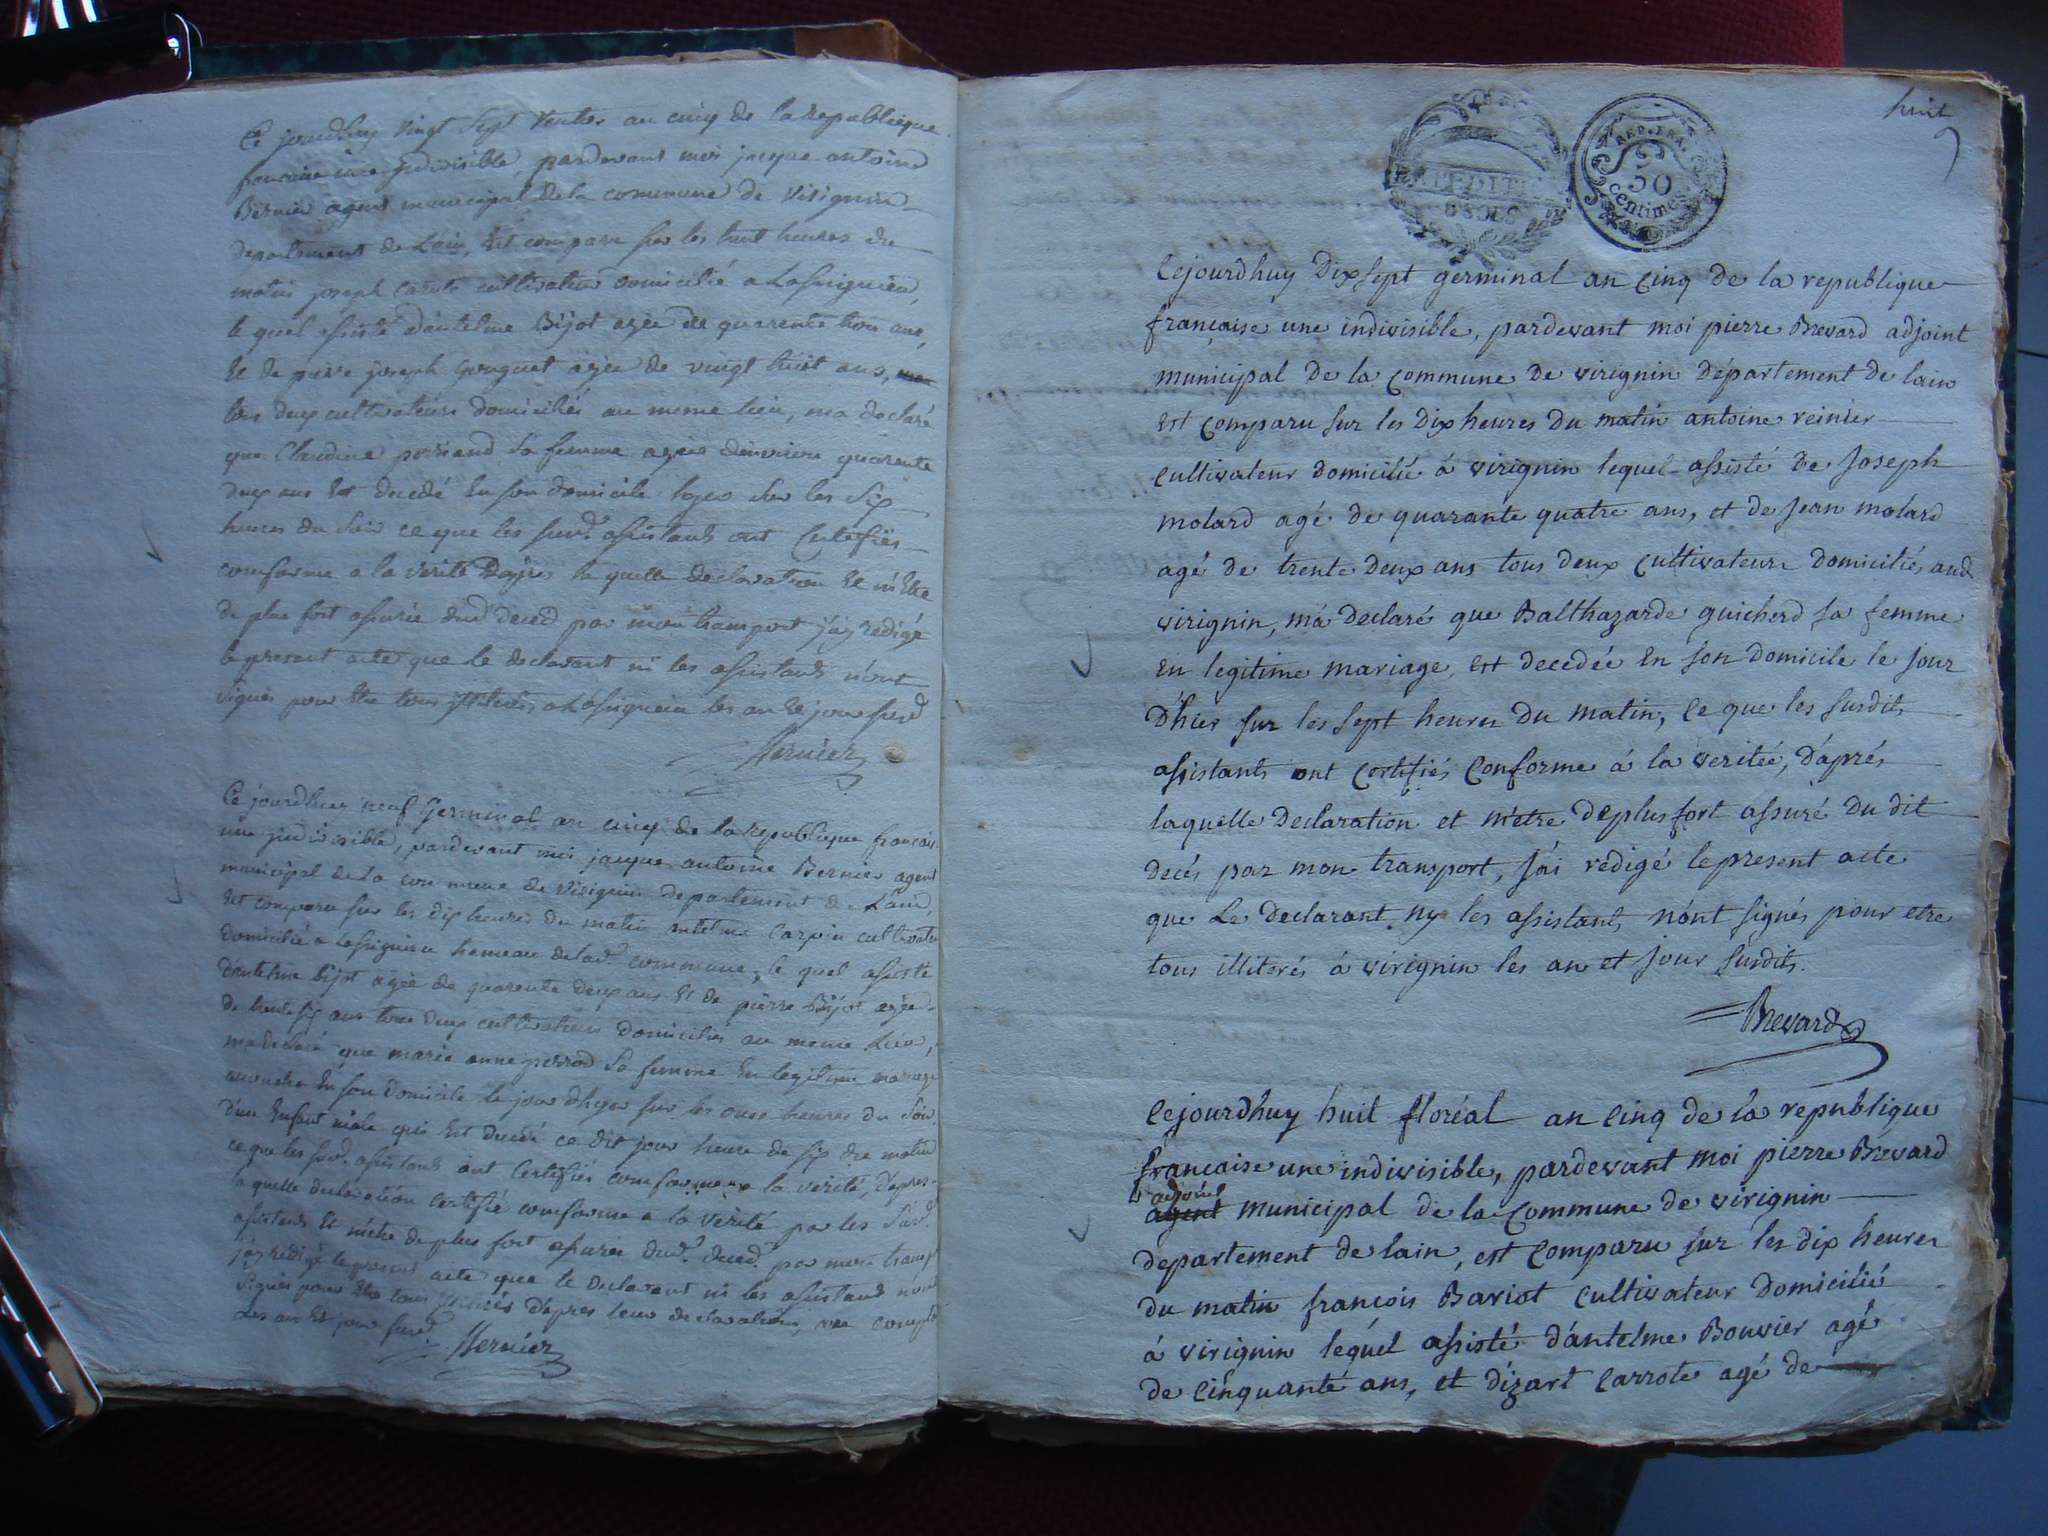 Ce jourdhuy vingt sept ventos an cinq de la republicque
francaise une jndivisible, pardevant moi jacque antoine
Bernier agent municipal de la commune de virignin
departement de Lain, Est comparu sur les huit heures du
matin joseph cultivateur domicilié a
le quel assisté d'antelme Bijot agée de quarente trois ans,
Et de pierre joseph gouguet agée de vingt huit ans,
tous deux cultivateurs domiciliés au meme lieu, ma declaré
que Claudine sa femme agée d'environ quarente
deux ans Est decedé En son domicile hyer sur les Six
heures du soir ce que les surd. assistants ont Certifiés
conforme a la verité Dapres la quelle declaration Et m'Etre
de plus fort assurée dud deced par mon transport j'ay redigé
le present acte que le declarant ni les assistants n'ont
signés pour Etre tous jlliterés, a les an Et jour surd
Bernier
Ce jourdhuy neuf Germinal an cinq de la republique francais
une jndivisible, pardevant moi jacque antoine Bernier agent
municipal de la commune de virignin departement de Lain,
Est comparu sur les dix heures du matin antelme Carpin cultivateur
domicilié a hameau de lad. commune, le quel assisté
d'antelme Bijot agée de quarente deux ans Et de pierre Bijot agée
de trente six ans tous deux cultivateurs domiciliés au meme lieu,
ma declaré que marie anne perrod sa femme En legitime mariage
accouché En son domicile le jour dhyer sur les onze heures du soir
d'un Enfant male qui Est decedé ce dit jour heure de six du matin
ce que les surd. assistants ont Certifiés conforme a la verité, d'apres
laquelle declaration certifié conforme a la verité par les surd.
assistants Et m'etre de plus fort assurée dud. deced. par mon transp.
j'ay redigé le present acte que le declarant ni les assistants n'ont
signés pour Etre tous d'apres leur declaration,
Les an Et jour surd.
Bernier
huit
REP. FRA.
50
centimes
8 SOLS
Cejourdhuy Dix sept germinal an cinq de la republique
francaise une indivisible, pardevant moi pierre Brevard adjoint
municipal de la commune de virignin département de lain
est comparu sur les dix heures du matin antoine reinier
cultivateur domicilié à virignin lequel assisté de Joseph
molard agé de quarante quatre ans, et de Jean molard
agé de trente deux ans tous deux cultivateurs domiciliés aud
virignin, m'a declaré que Balthazarde guicherd sa femme
en legitime mariage, est decedée en son domicile le jour
d'hier sur les sept heures du matin, ce que les surdits
assistants ont certifiés conforme à la veritée, d'aprés
laquelle declaration et m'etre deplus fort assuré du dit
decés par mon transport, j'ai redigé le present acte
que le declarant ny les assistants n'ont signés pour etre
tous illiterés à virignin les an et jour surdits.
Brevard
Cejourdhuy huit floréal an cinq de la republique
francaise une indivisible, pardevant moi pierre Brévard
adjoint
agent municipal de la commune de virignin
departement de lain, est comparu sur les dix heures
du matin françois Bariot cultivateur domicilié
à virignin lequel assisté d'antelme Bouvier agé
de cinquante ans, et dizart carrote agé de